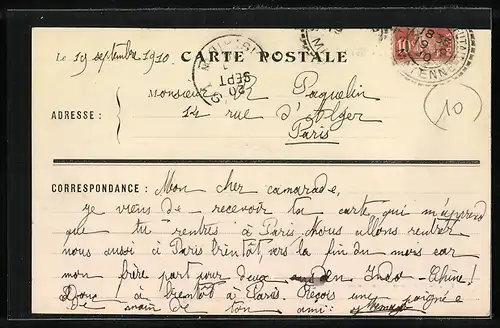 Le 19 septembre 1910. CARTE POSTALE
20
SEPT
18
10
Monsieur R Paquelin
ADRESSE : 14 rue d'Alger
Paris
10
CORRESPONDANCE : Mon cher camarade,
je viens de recevoir ta carte qui m'apprend
que tu rentres à Paris. Nous allons rentrer
nous aussi à Paris bientôt, vers la fin du mois car
mon frère part pour deux ans en Indo-Chine!
Donc à bientôt à Paris. Reçois une poignée
de main de ton ami :